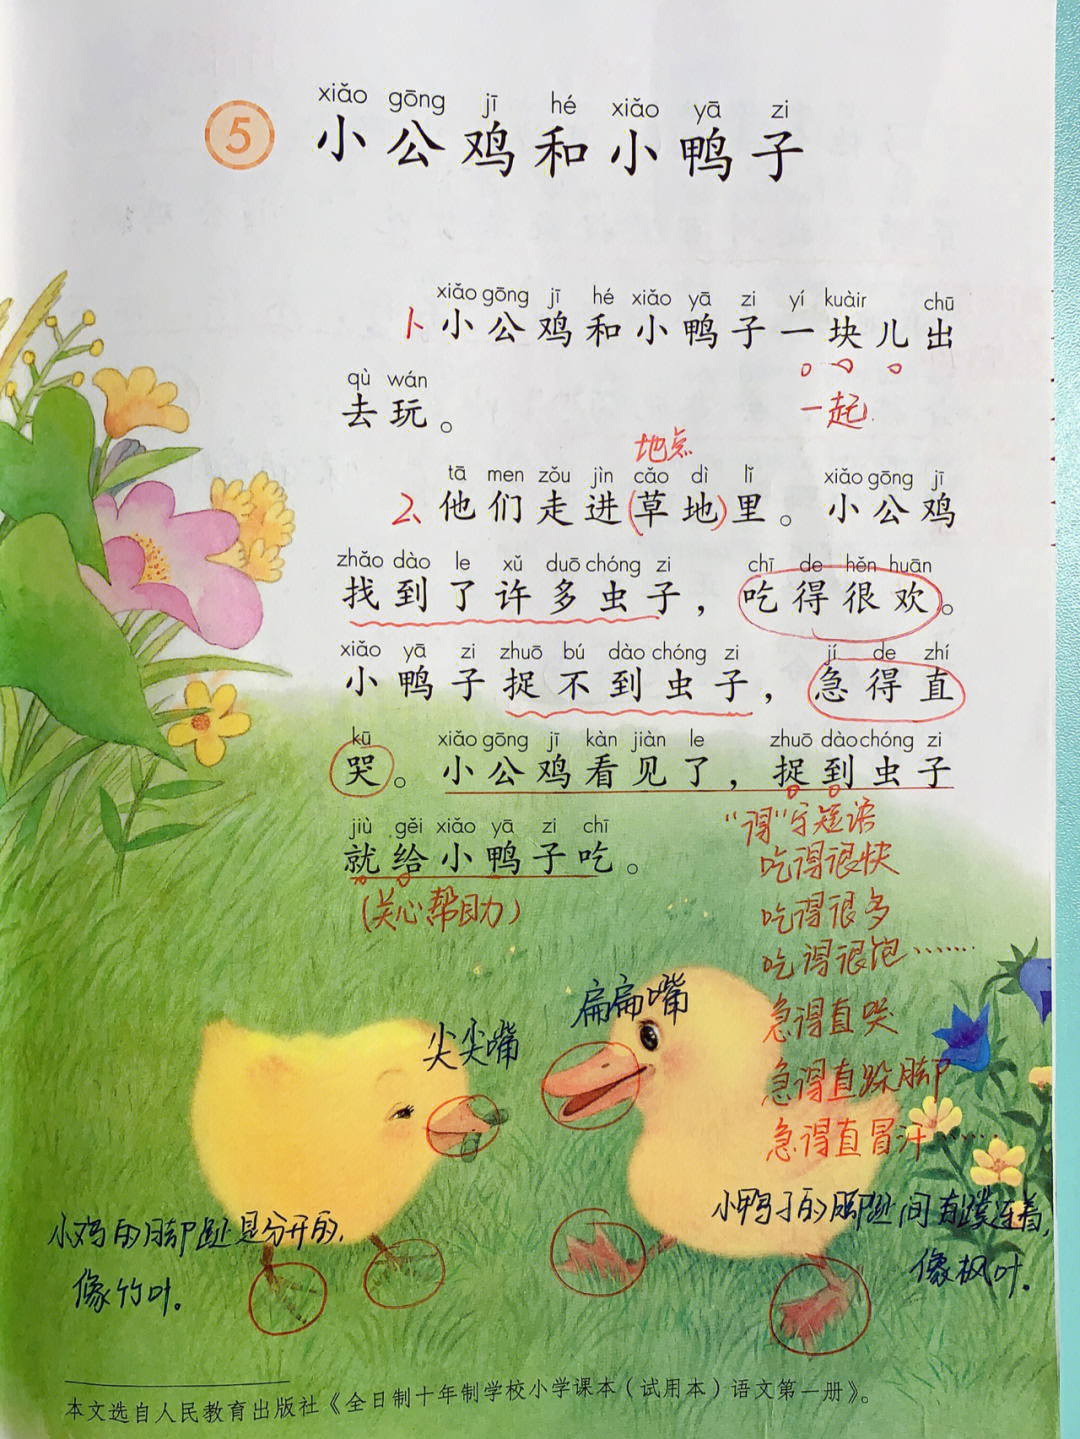 xiǎo gōng jī hé xiǎo yā zi
5 小公鸡和小鸭子
xiǎo gōng jī hé xiǎo yā zi yí kuàir chū
1、小公鸡和小鸭子一块儿出
qù wán
去玩。
一起
地点
tā men zǒu jìn cǎo dì lǐ xiǎo gōng jī
2、他们走进(草地)里。小公鸡
zhǎo dào le xǔ duō chóng zi chī de hěn huān
找到了许多虫子，吃得很欢。
xiǎo yā zi zhuō bú dào chóng zi jí de zhí
小鸭子捉不到虫子，急得直
kū xiǎo gōng jī kàn jiàn le zhuō dào chóng zi
哭。小公鸡看见了，捉到虫子
jiù gěi xiǎo yā zi chī
就给小鸭子吃。
(关心帮助)
“得”字短语
吃得很快
吃得很多
吃得很饱……
急得直哭
急得直跺脚
急得直冒汗……
尖尖嘴
扁扁嘴
小鸡的脚趾是分开的,
像竹叶。
小鸭子的脚趾间有蹼连着,
像枫叶。
本文选自人民教育出版社《全日制十年制学校小学课本（试用本）语文第一册》。